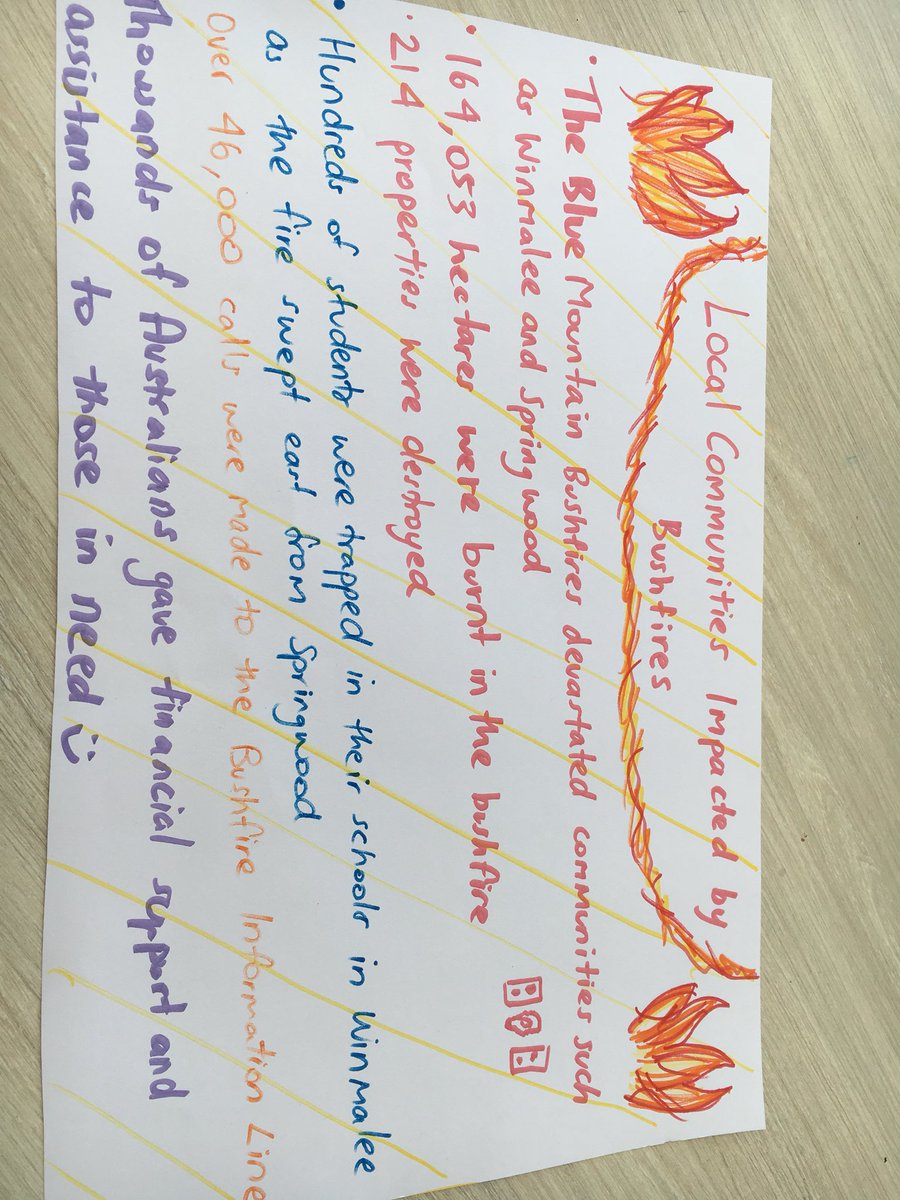 Local Communities Impacted by
Bushfires
• The Blue Mountain Bushfires devastated communities such
as Winmalee and Springwood
• 164,053 hectares were burnt in the bushfire
• 214 properties were destroyed
• Hundreds of students were trapped in their schools in Winmalee
as the fire swept east from Springwood
Over 46,000 calls were made to the Bushfire Information Line
Thowands of Australians gave financial support and
assistance to those in need :)